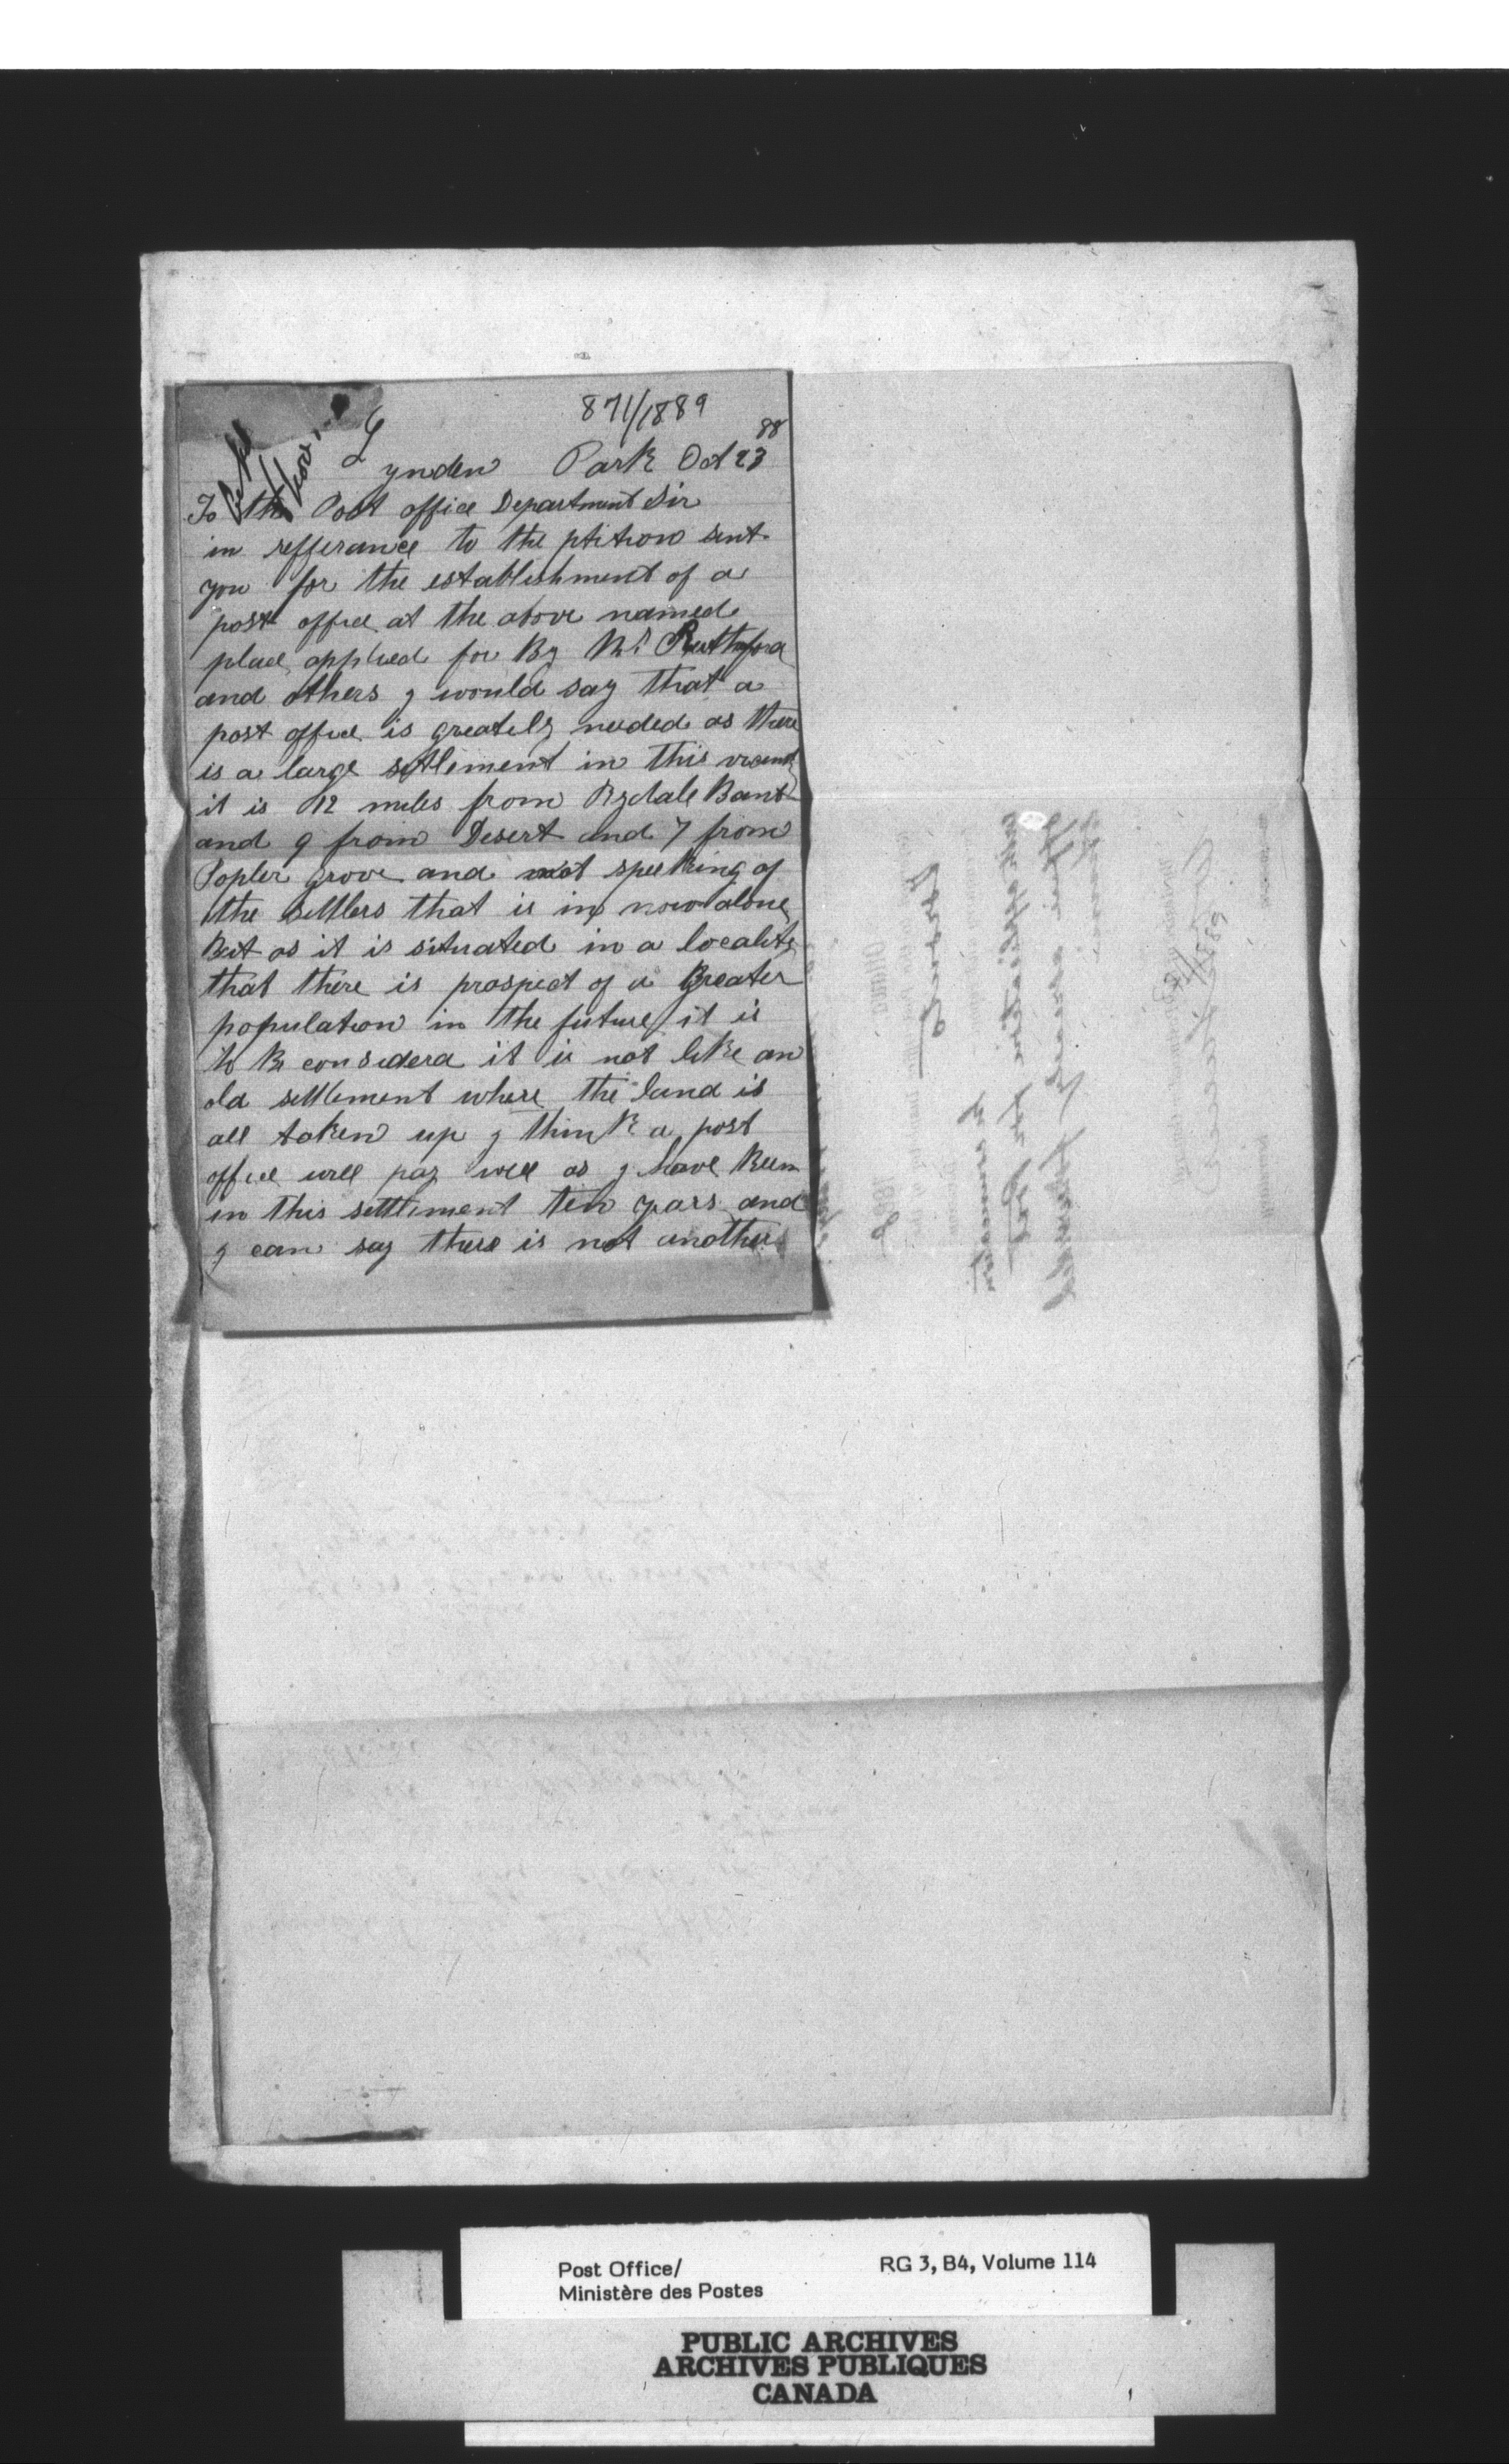 871/1889
Lynden Park Oct 23 88
To the Post office Department Sir
in refferance to the ptition sent
you for the establishment of a
post office at the above named
place applied for By Mr Ruthford
and others I would say that a
post office is greatily needed as there
is a large settlement in this
it is 12 miles from
and 9 from Desert and 7 from
Popler grove and not speeking of
the settlers that is in now alone
But as it is situated in a locality
that there is prospect of a Greater
population in the future it is
to Be considerd it is not like an
old settlement where the land is
all taken up I think a post
office will pay well as I have Been
in this settlement ten years and
I can say there is not another
Post Office/
Ministère des Postes
RG 3, B4, Volume 114
PUBLIC ARCHIVES
ARCHIVES PUBLIQUES
CANADA